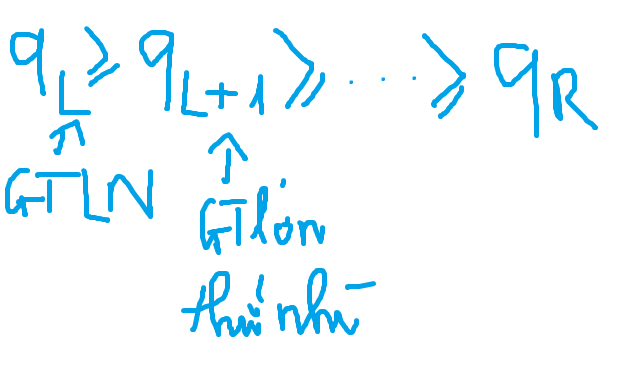 q_L ≥ q_{L+1} ≥ ... ≥ q_R
↑ ↑
GTLN GT lớn
thứ nhì